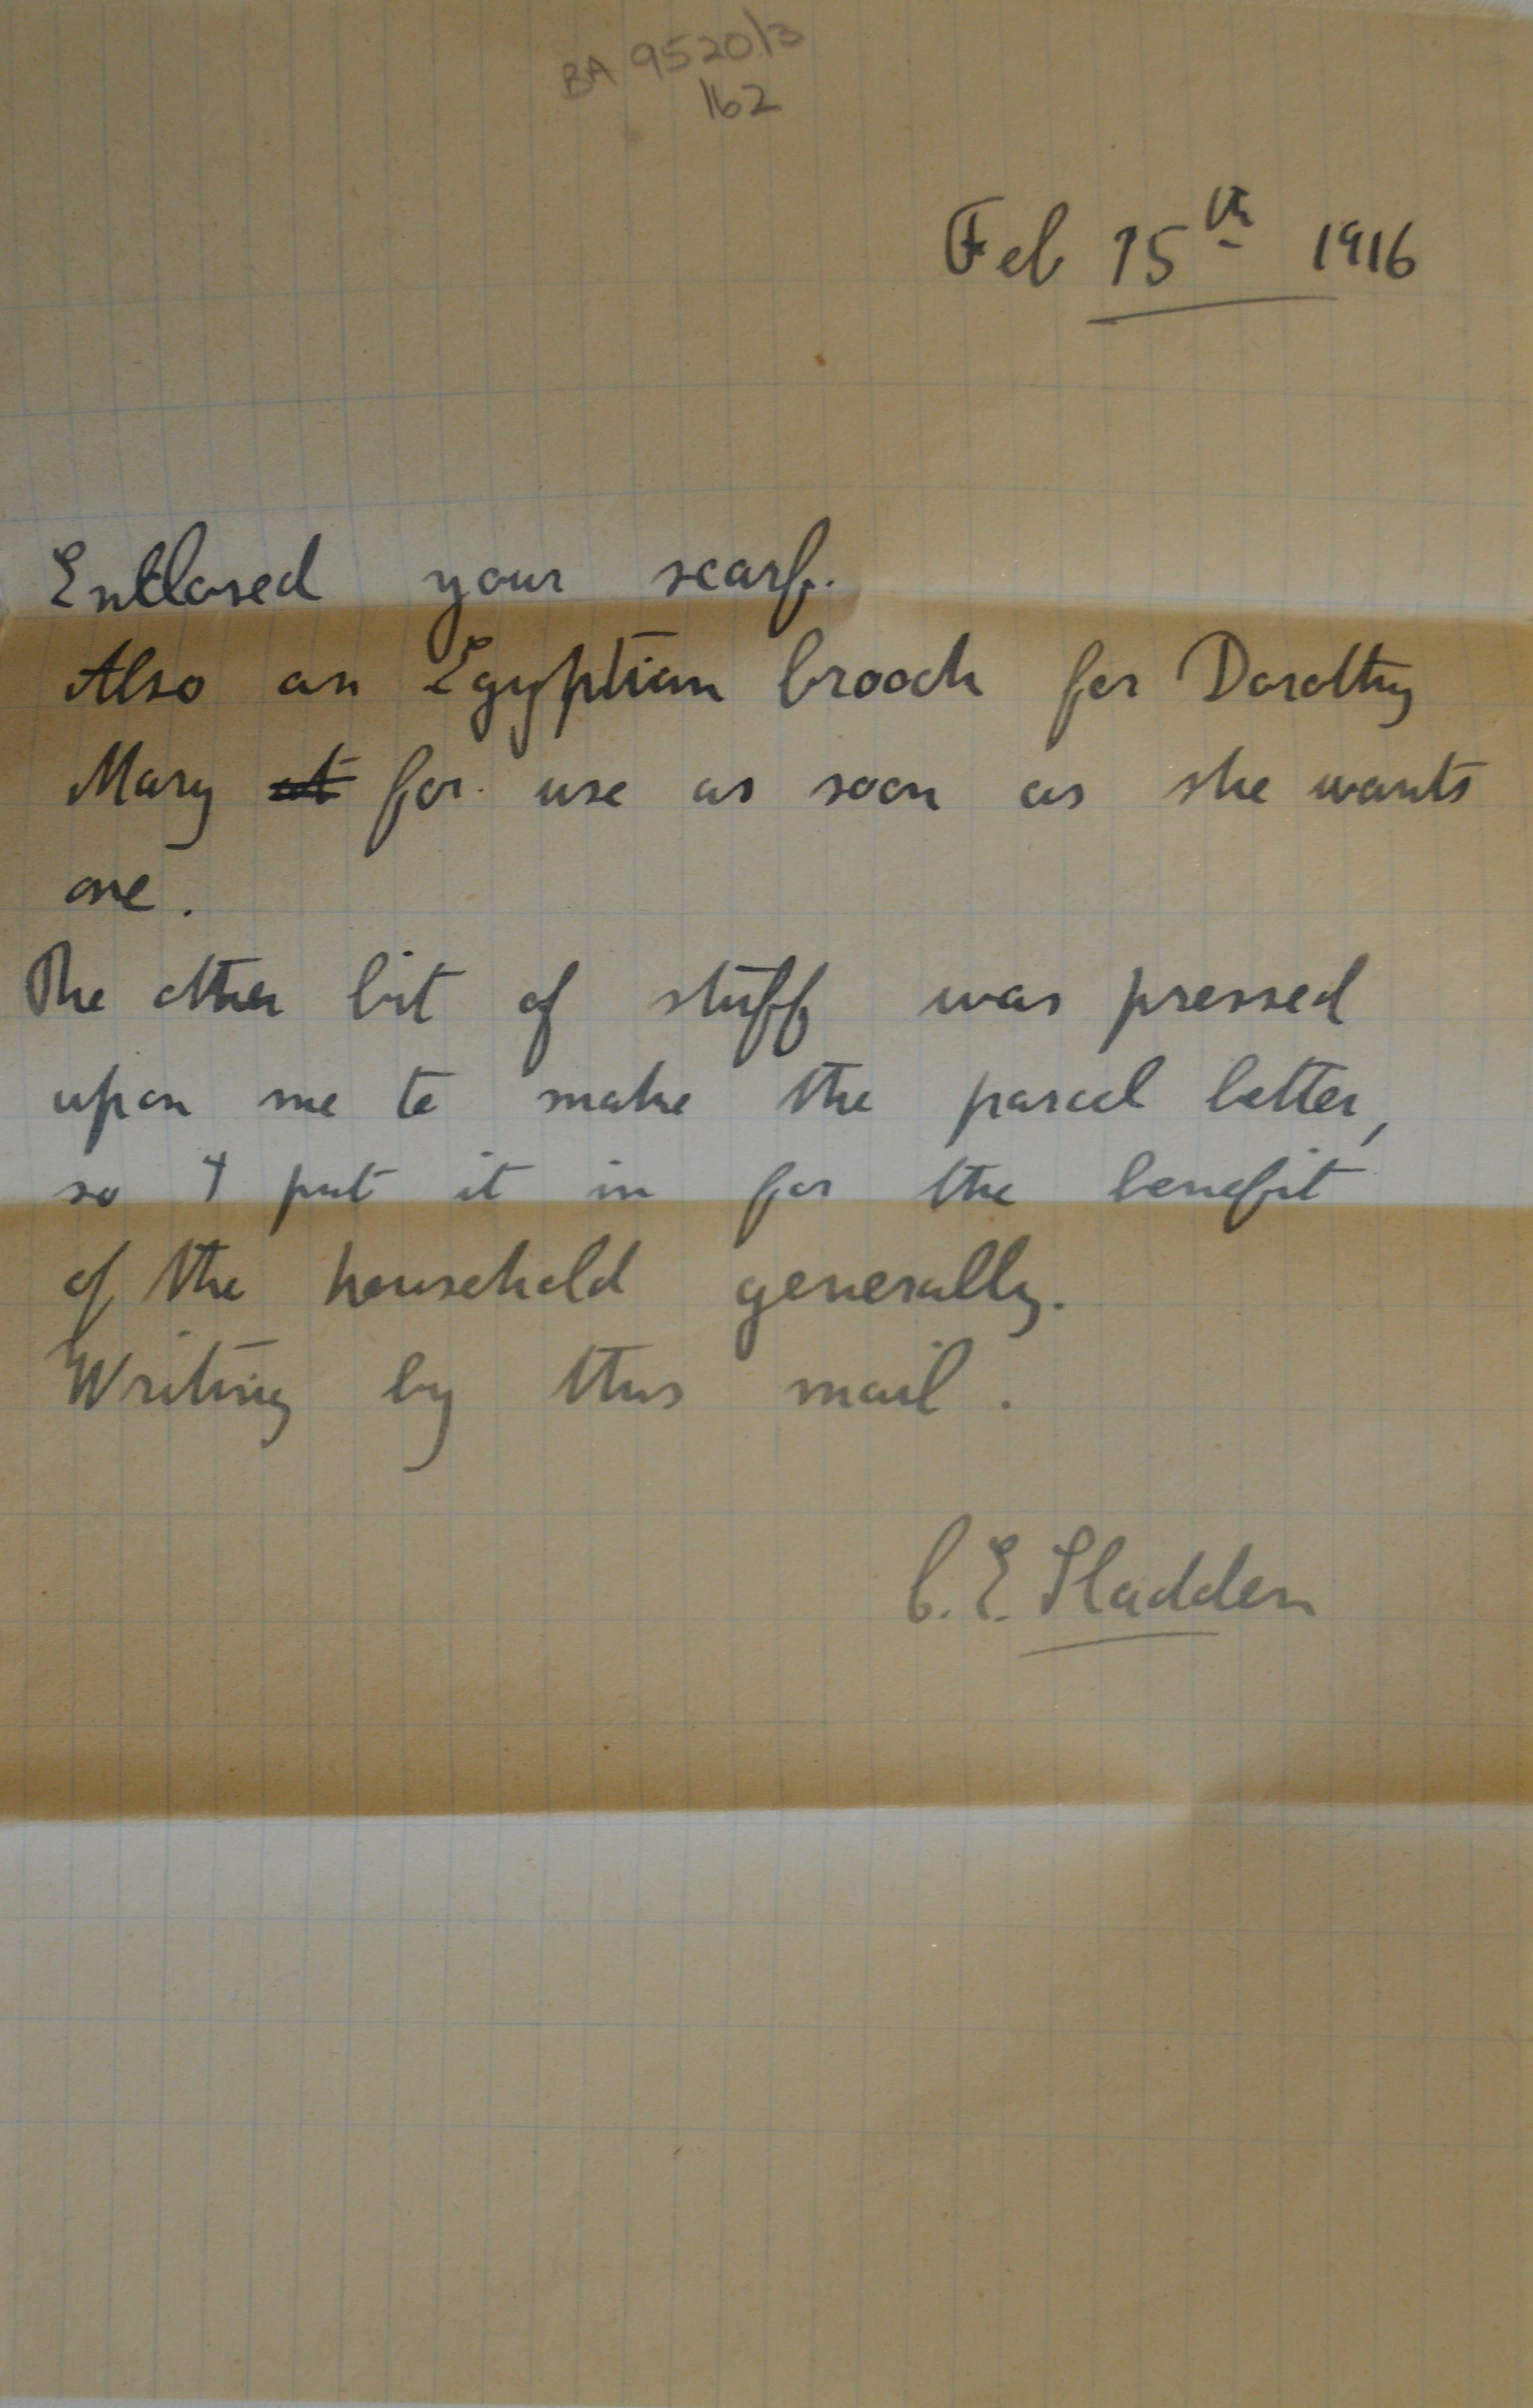 BA 9520/3
162
Feb 15th 1916
Enclosed your scarf.
Also an Egyptian brooch for Dorothy
Mary ~~at~~ for use as soon as she wants
one.
The other bit of stuff was pressed
upon me to make the parcel better,
so I put it in for the benefit
of the household generally.
Writing by this mail.
C. E. Sladden